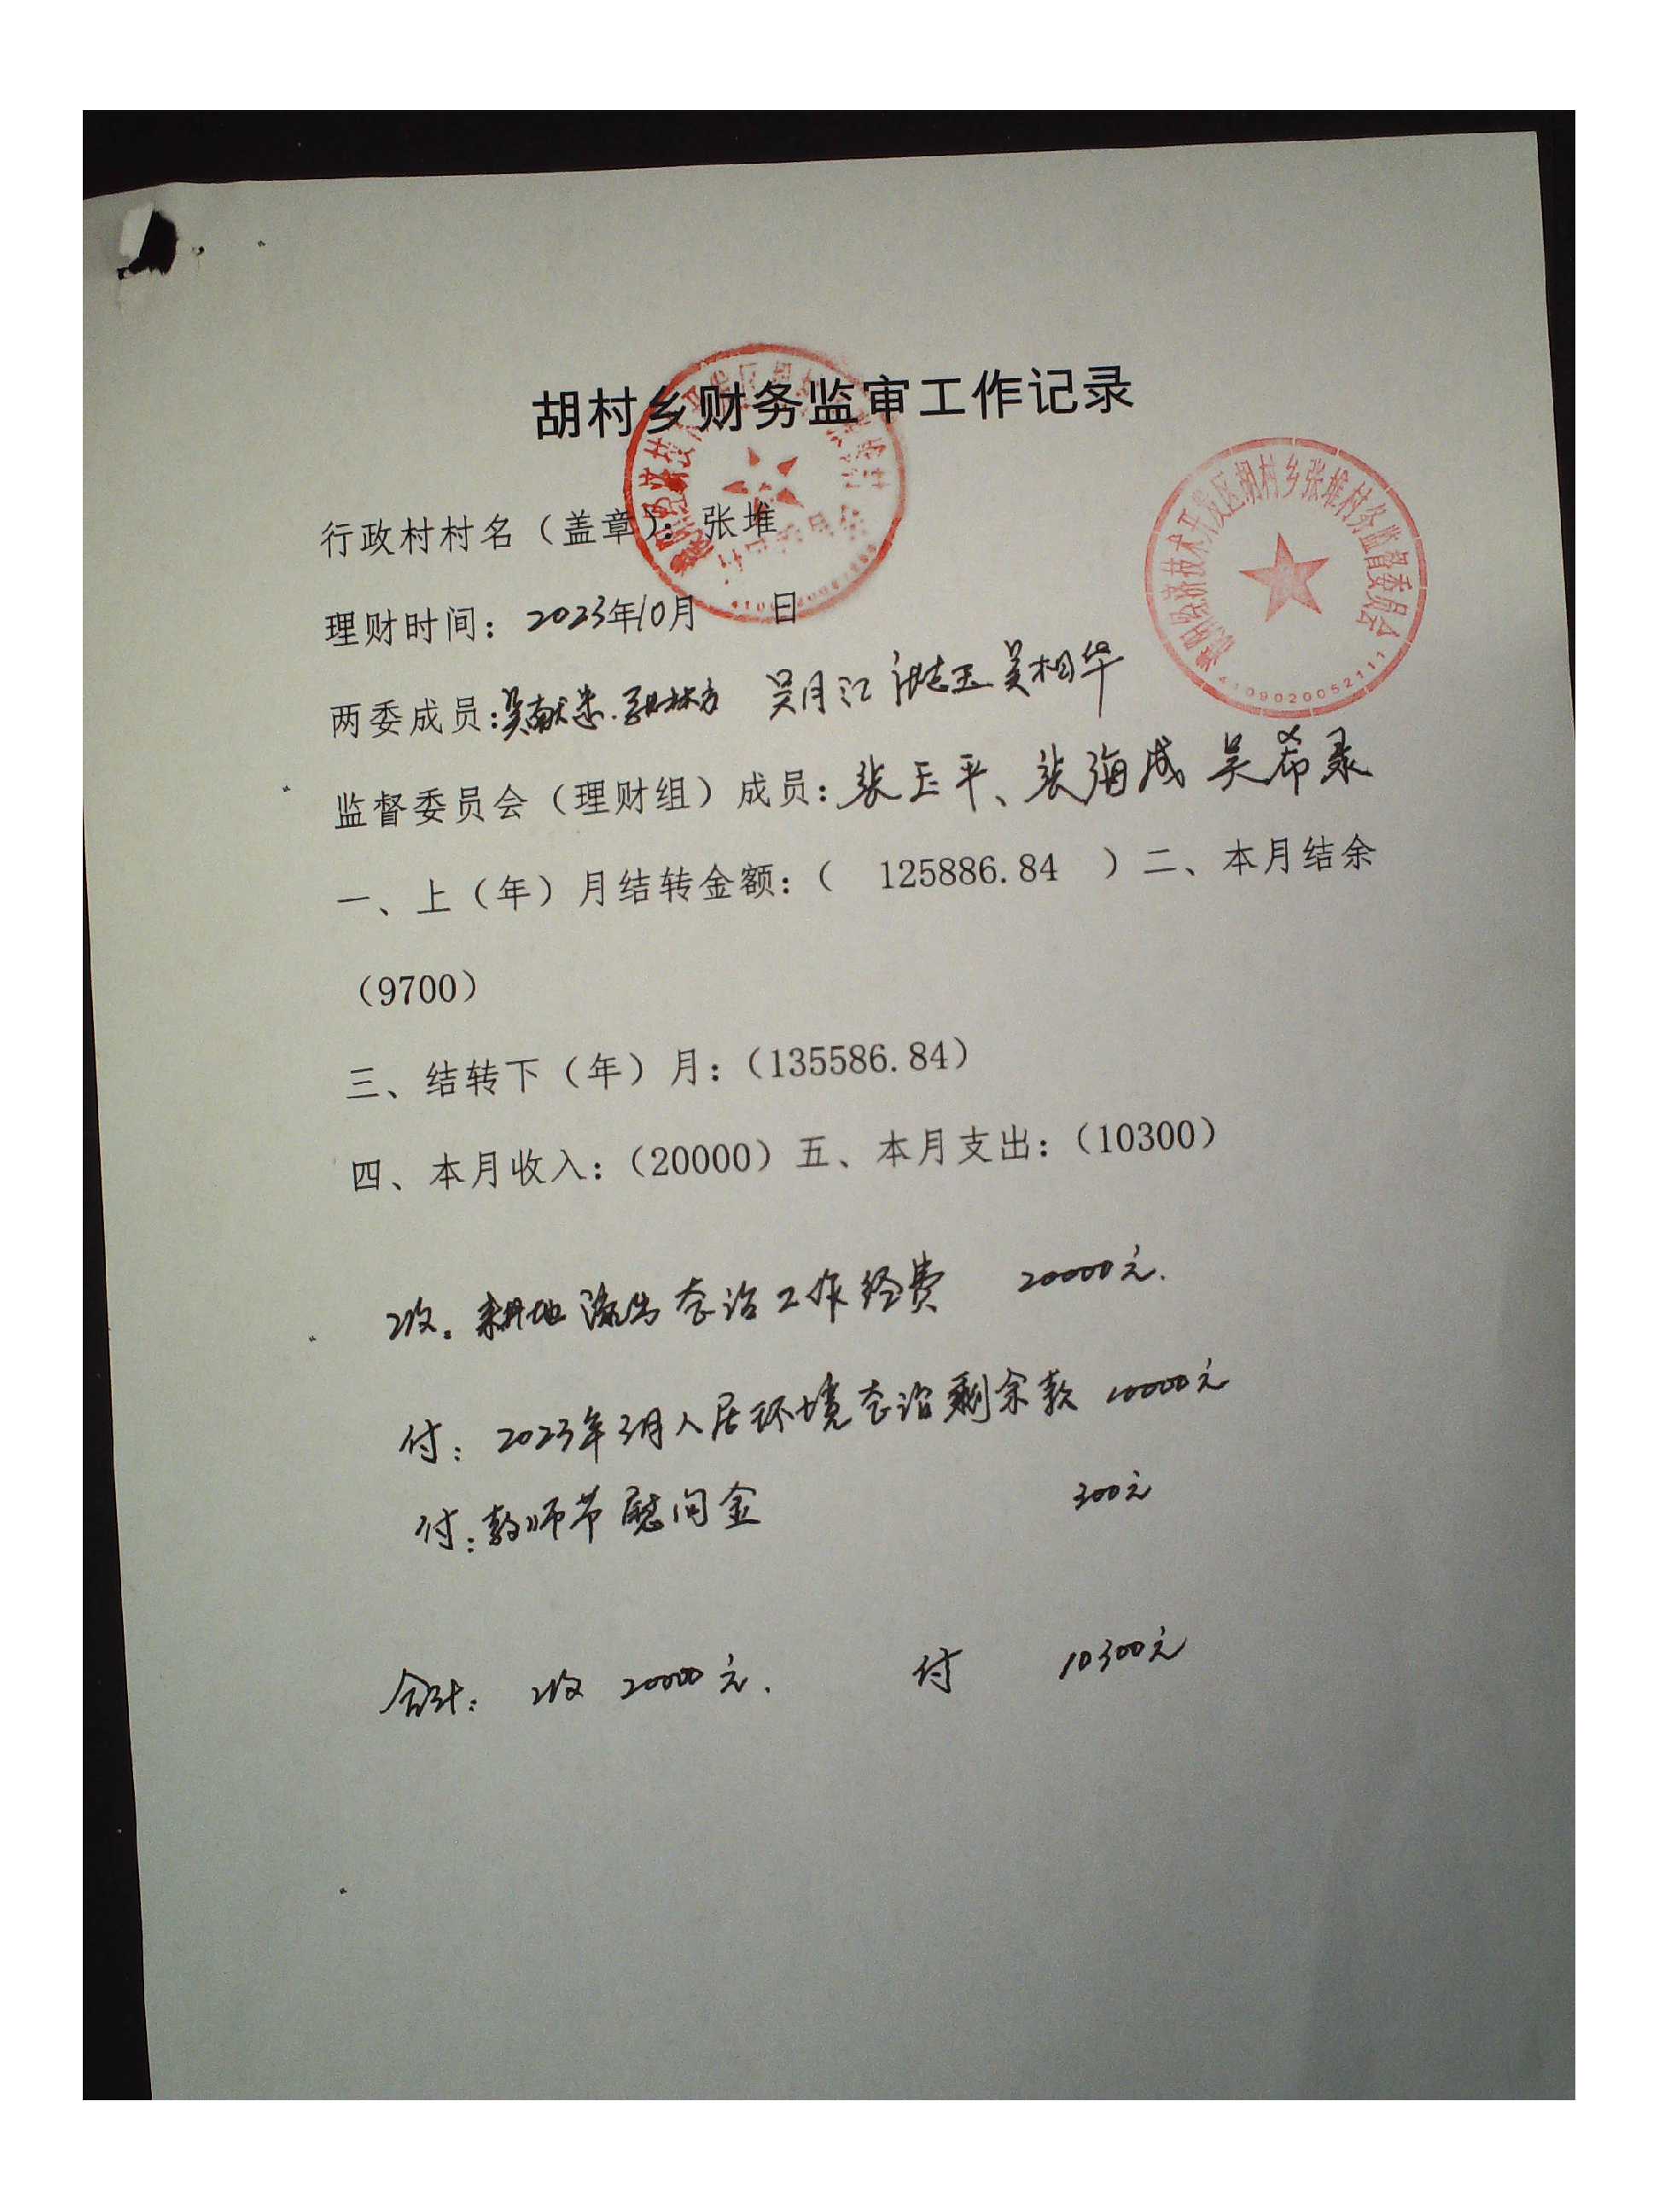 胡村乡财务监审工作记录
行政村村名（盖章）：张堆
理财时间：2023年10月 日
两委成员：吴献忠. 吴月江 张志玉 吴相华
监督委员会（理财组）成员：张玉平、张海成 吴希录
一、上（年）月结转金额：（ 125886.84 ）二、本月结余
（9700）
三、结转下（年）月：（135586.84）
四、本月收入：（20000）五、本月支出：（10300）
收. 耕地流出在治工作经费 20000元.
付：2023年3月人居环境在治剩余款 10000元
付：教师节慰问金 300元
合计： 收 20000元. 付 10300元
濮阳经济技术开发区胡村乡张堆村务监督委员会
4109020052111